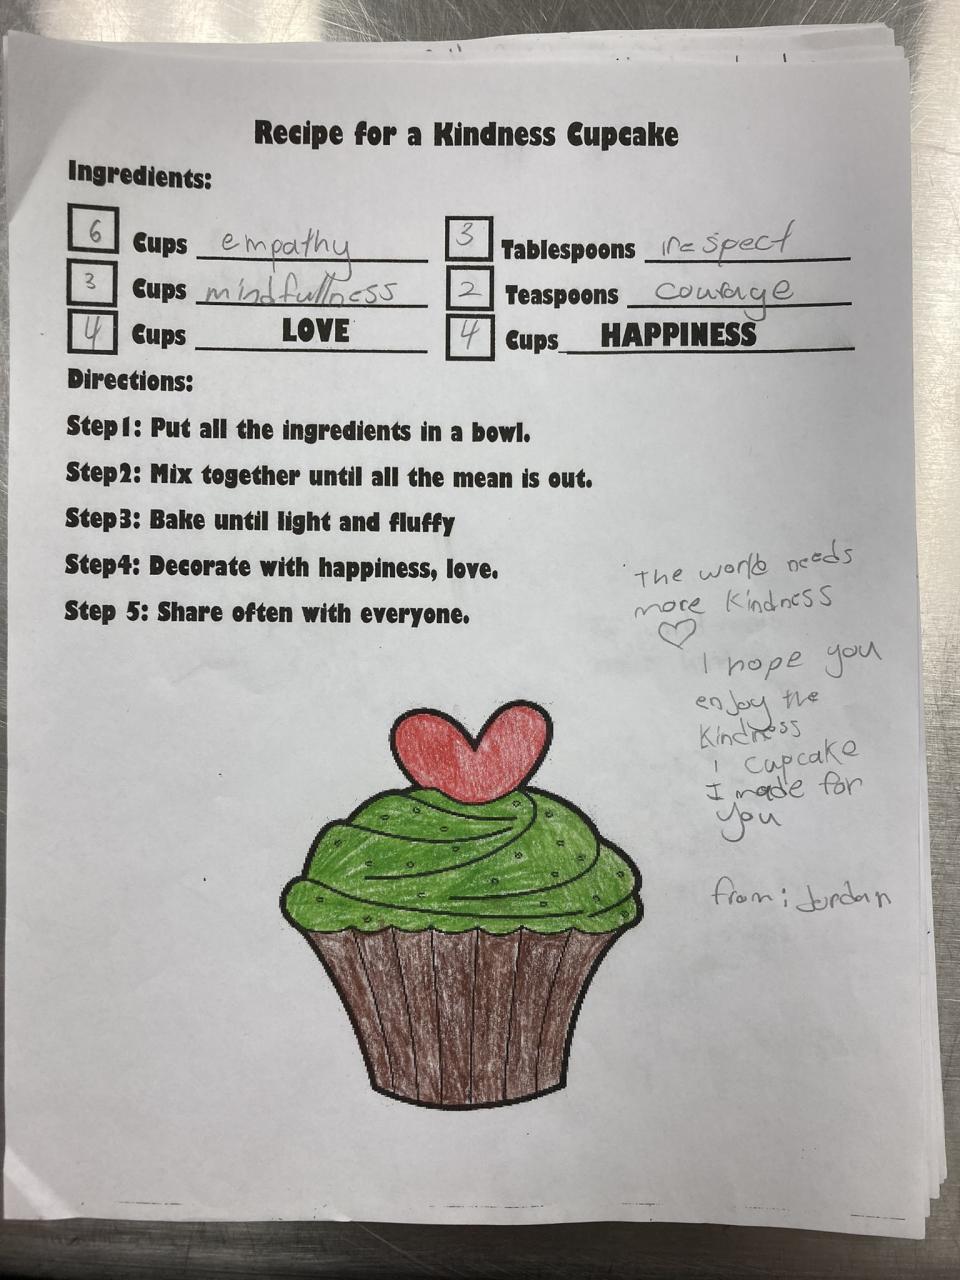 Recipe for a Kindness Cupcake
Ingredients:
6 Cups empathy 3 Tablespoons respect
3 Cups mindfullness 2 Teaspoons courage
4 Cups LOVE 4 Cups HAPPINESS
Directions:
Step1: Put all the ingredients in a bowl.
Step2: Mix together until all the mean is out.
Step3: Bake until light and fluffy
Step4: Decorate with happiness, love.
Step 5: Share often with everyone.
The world needs
more Kindness
I hope you
enjoy the
Kindness
1 Cupcake
I made for
you
from: Jordan